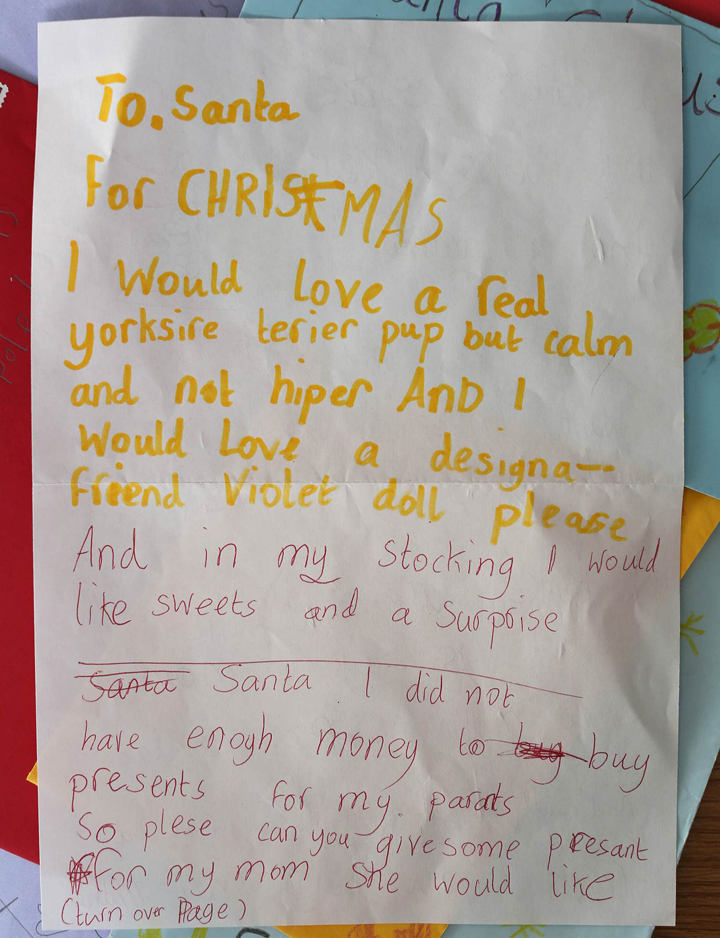 To. Santa
For CHRISTMAS
I Would Love a real
yorksire terier pup but calm
and not hiper AnD I
Would Love a designa-
friend Violet doll please
And in my stocking I would
like sweets and a surprise
Santa Santa I did not
have enogh money to buy buy
presents for my parats
So plese can you give some presant
for my mom She would like
(turn over Page)